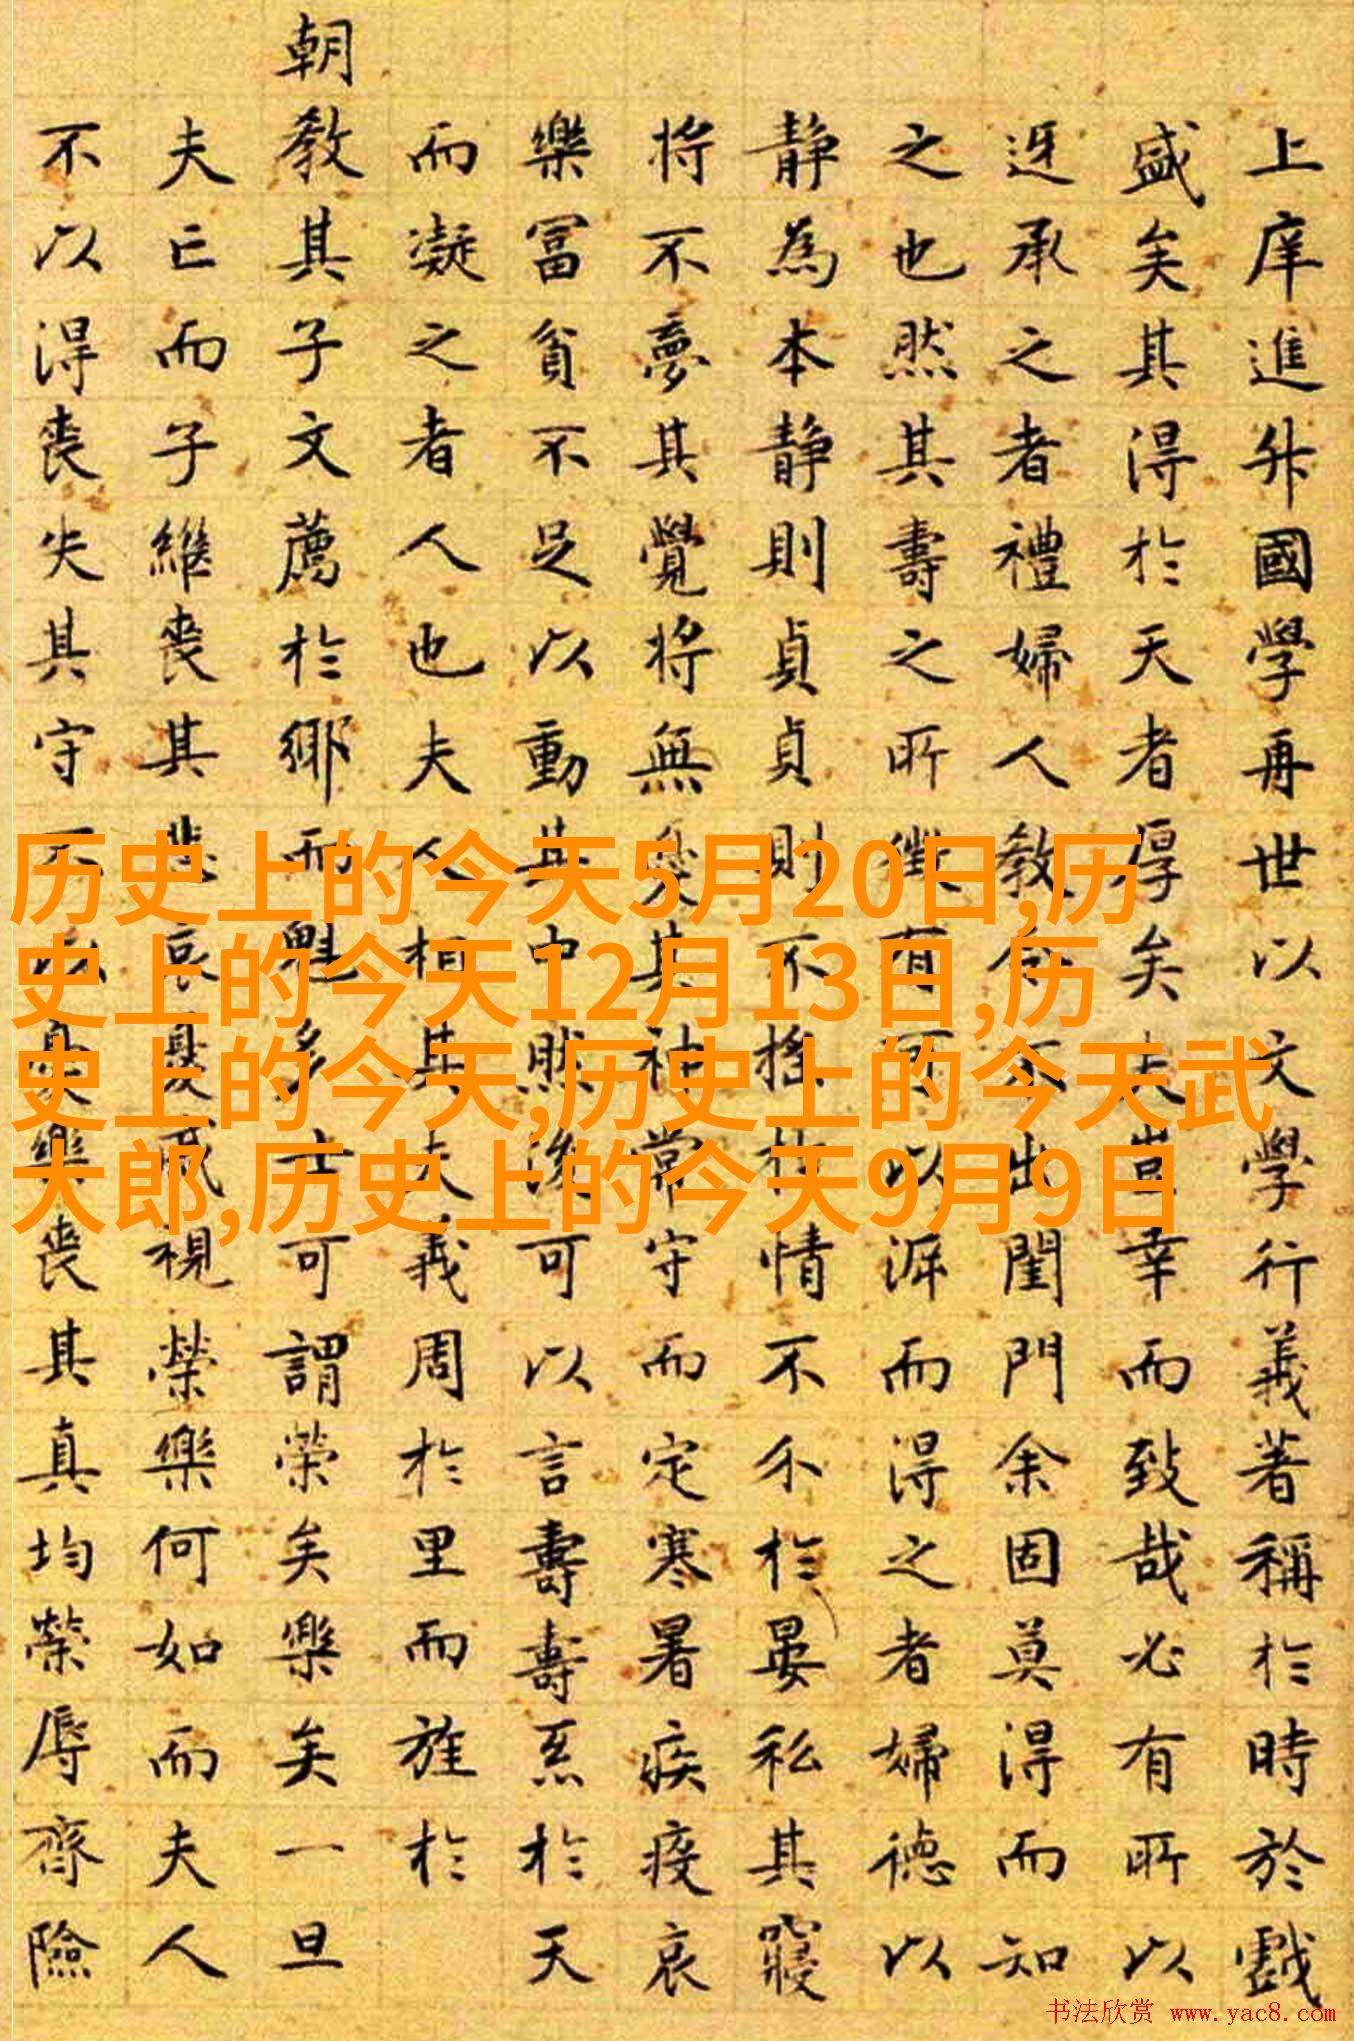 上庠進升國學再世以文學行義著稱於時於戲
盛矣其得於天者厚矣夫豈幸而致哉必有所以
迓承之者禮婦人教令不出閨門余固莫得而知
之也然其壽之所徵有可以涯而得之者婦德以
静為本静則貞貞則不搖於情不尒於晏私其寢
将不夢其覺将無憂其神常守而定寒暑疾疫哀
樂冨貧不足以動其中然後可以言壽壽系於天
而凝之者人也夫人相其夫義周於里而旌於
朝教其子文薦於鄉而魁多士可謂榮矣樂矣一旦
夫亡而子繼喪其悲哀憂戚視榮樂何如而夫人
不以得喪失其守不以樂喪其真均榮辱齊險
历史上的今天5月20日,历
史上的今天12月13日,历
史上的今天,历史上的今天武
大郎,历史上的今天9月9日
书法欣赏 www.yac8.com